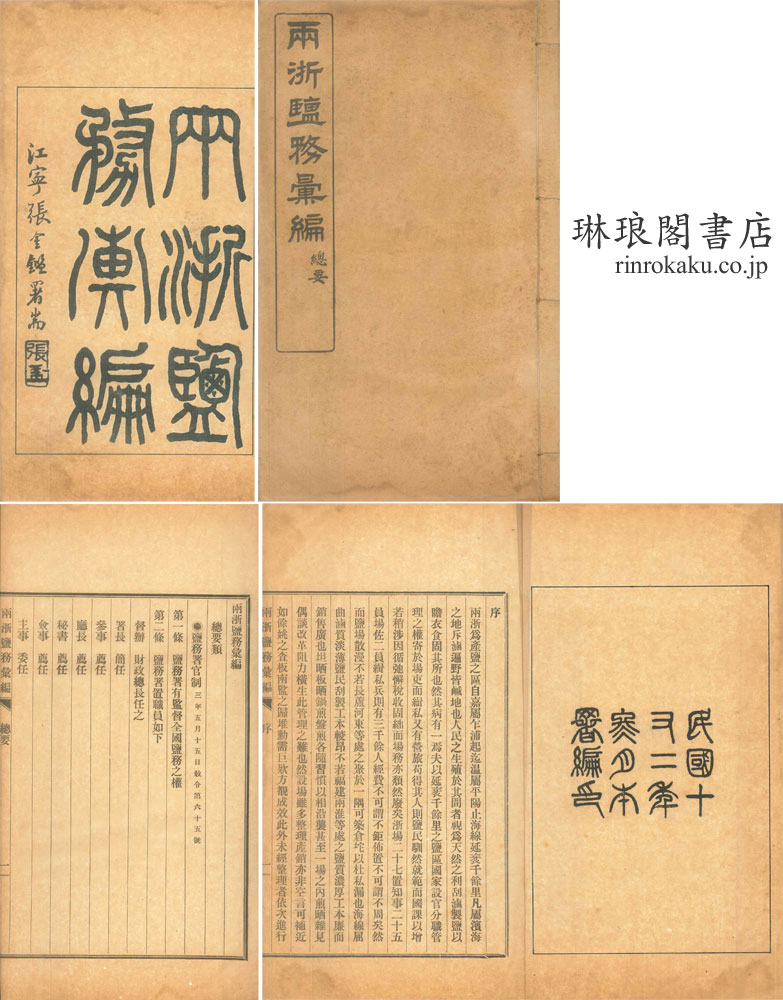 兩浙鹽
務彙編
江寧張金鑑署耑
兩浙鹽務彙編
總要
琳琅閣書店
rinrokaku.co.jp
兩浙鹽務彙編
總要類
鹽務署官制 三年五月十五日敎令第六十五號
第一條 鹽務署有監督全國鹽務之權
第二條 鹽務署置職員如下
督辦 財政總長任之
署長 簡任
參事 薦任
廳長 薦任
秘書 薦任
僉事 薦任
主事 委任
兩浙鹽務彙編 總要
一
民國十
又二年
本
署編印
序
兩浙爲產鹽之區自嘉屬乍浦起迄溫屬平陽止海線延袤千餘里凡屬濱海
之地斥鹵遍野皆鹹地也人民之生殖於其間者視爲天然之利刮滷製鹽以
贍衣食固其所也然其病有一焉夫以延袤千餘里之鹽區國家設官分職管
理之權寄於場吏而緝私又有營旅苟得其人則鹽民馴然就範而國課以增
若稍涉因循弛懈稅收固絀而場務亦頹然廢矣浙場二十七置知事二十五
員場佐二員緝私兵則有三千餘人經費不可謂不鉅佈置不可謂不周矣然
而鹽場散漫不若長蘆河東等處之聚於一隅可築倉坨以杜私漏也海線屈
曲滷質淡薄鹽民刮製工本較昂不若福建兩淮等處之鹽質濃厚工本廉而
銷售廣也坦晒板晒鍋煎盤煎各隨習慣以相沿襲甚至一場之內煎晒雜見
偶談改革阻力橫生此管理之難也然設場雖多整理產銷亦非空言可補近
如餘姚之查板南監之歸堆動需巨欵方觀成效此外未經整理者依次進行
兩浙鹽務彙編 序
一